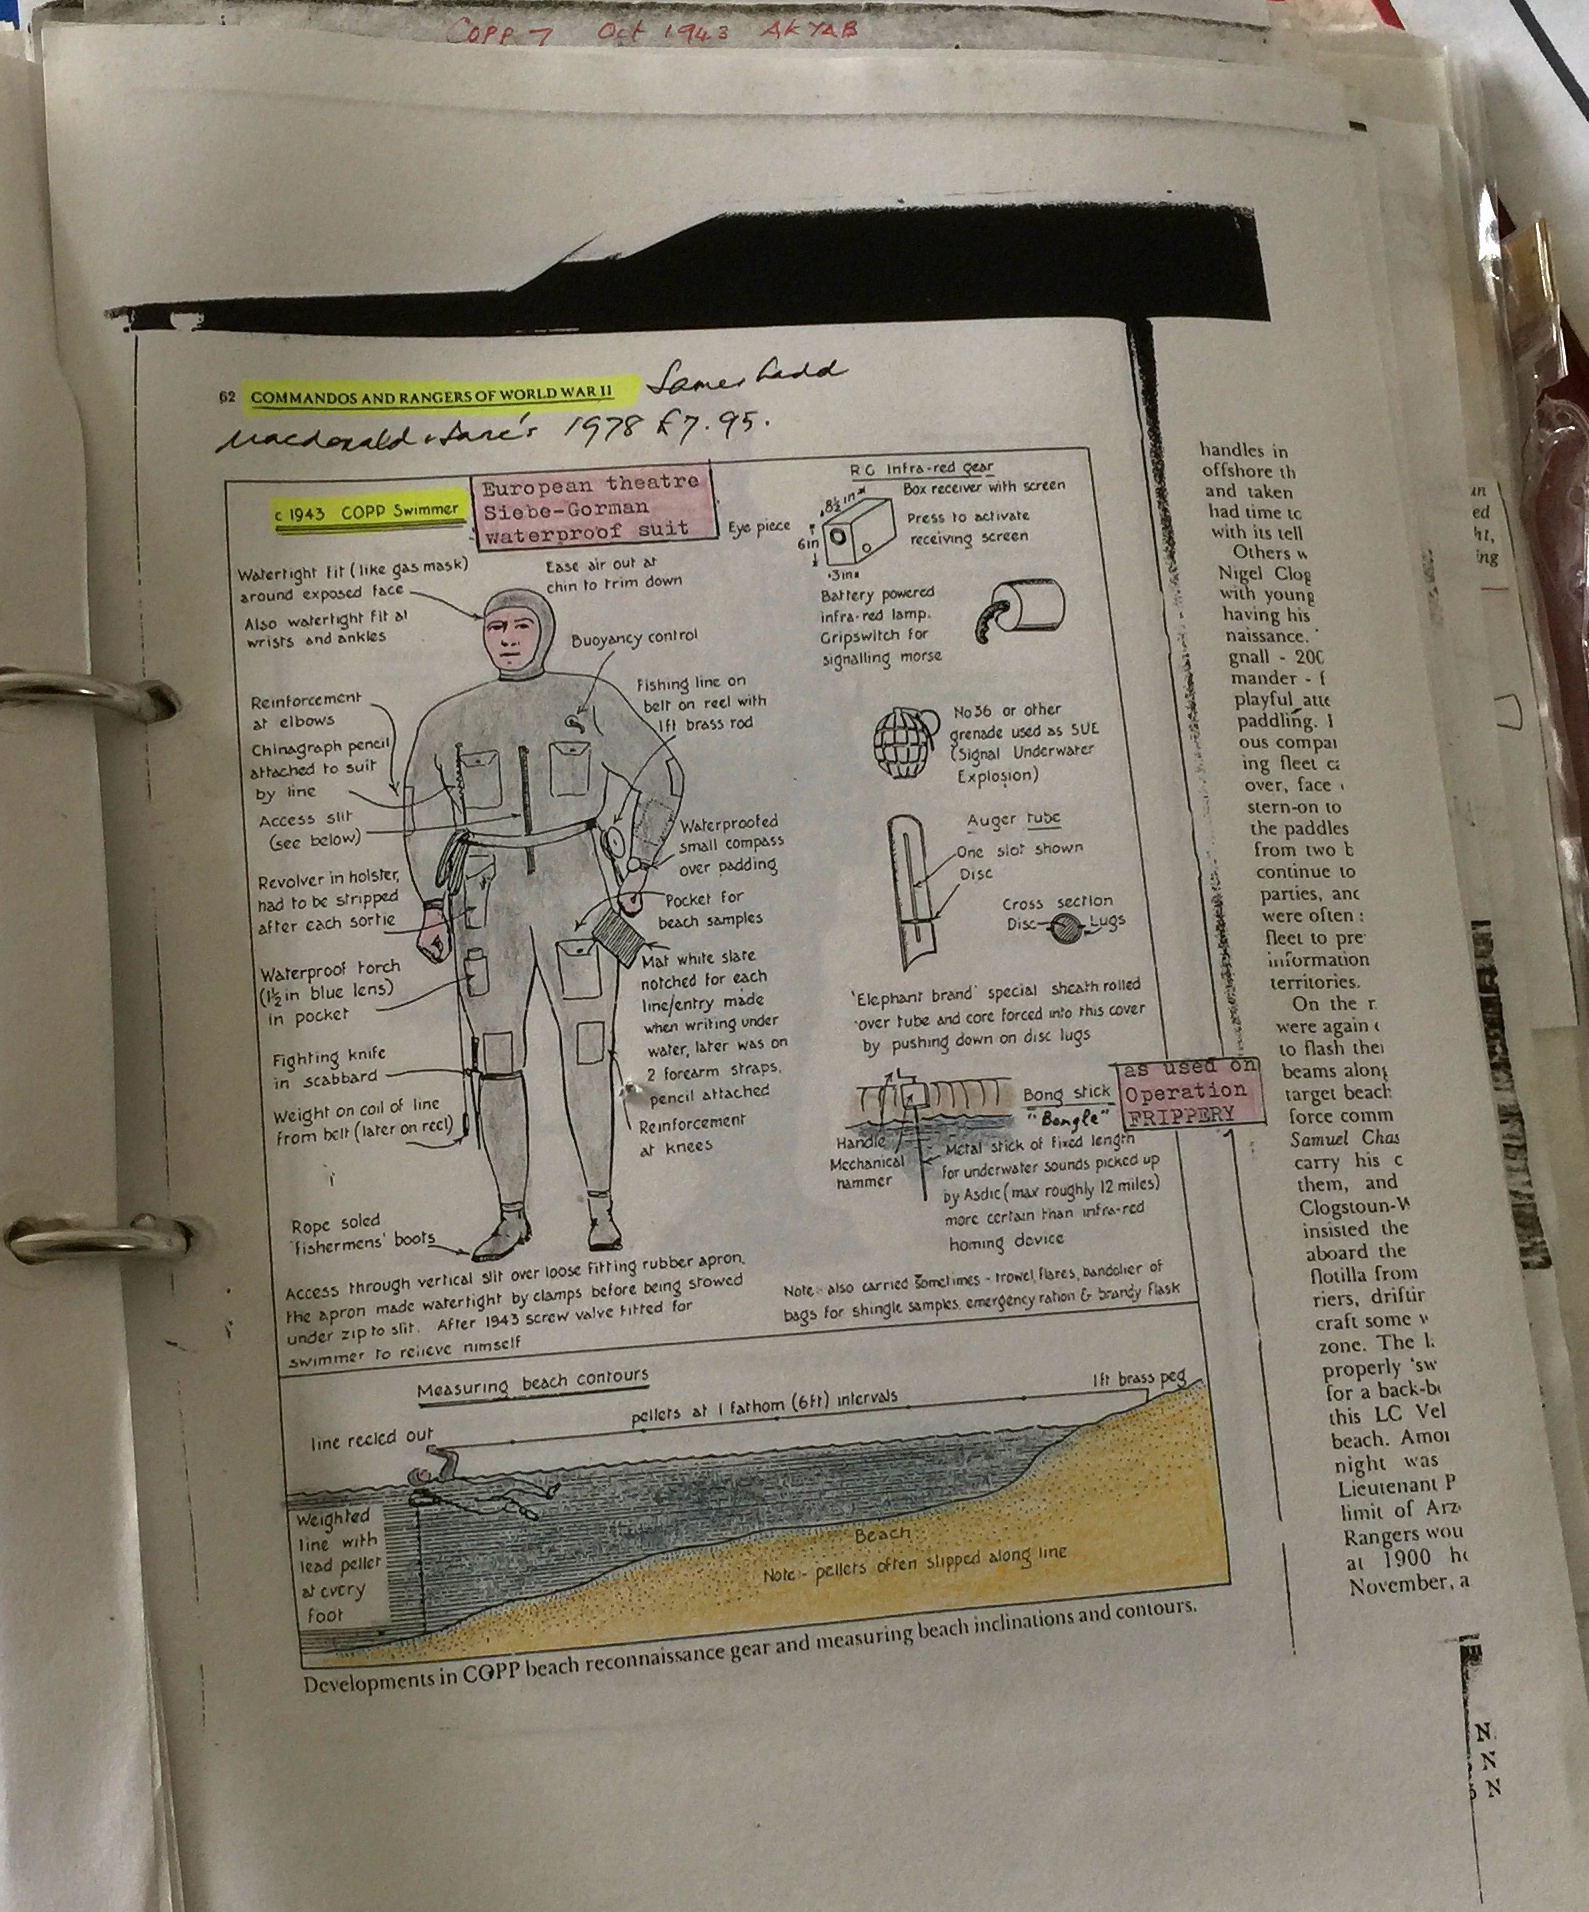 COPP 7 Oct 1943 AKYAB
62 COMMANDOS AND RANGERS OF WORLD WAR II James Ladd
Macdonald & Jane's 1978 £7.95.
c 1943 COPP Swimmer
European theatre
Siebe-Gorman
waterproof suit
Watertight fit (like gas mask)
around exposed face
Also watertight fit at
wrists and ankles
Ease air out at
chin to trim down
Buoyancy control
Reinforcement
at elbows
Fishing line on
belt on reel with
1ft brass rod
Chinagraph pencil
attached to suit
by line
Access slit
(see below)
Waterproofed
small compass
over padding
Revolver in holster,
had to be stripped
after each sortie
Pocket for
beach samples
Waterproof torch
(1½in blue lens)
in pocket
Mat white slate
notched for each
line/entry made
when writing under
water, later was on
2 forearm straps,
pencil attached
Fighting knife
in scabbard
Weight on coil of line
from belt (later on reel)
Reinforcement
at knees
Rope soled
'fishermens' boots
Access through vertical slit over loose fitting rubber apron,
the apron made watertight by clamps before being stowed
under zip to slit. After 1943 screw valve fitted for
swimmer to relieve himself
RG Infra-red gear
Box receiver with screen
8½in
Eye piece
6in
3in
Press to activate
receiving screen
Battery powered
infra-red lamp.
Gripswitch for
signalling morse
No 36 or other
grenade used as SUE
(Signal Underwater
Explosion)
Auger tube
One slot shown
Disc
Cross section
Disc Lugs
'Elephant brand' special sheath rolled
over tube and core forced into this cover
by pushing down on disc lugs
Bong stick
"Bongle"
as used on
Operation
FRIPPERY
Handle
Mechanical
hammer
Metal stick of fixed length
for underwater sounds picked up
by Asdic (max roughly 12 miles)
more certain than infra-red
homing device
Note:- also carried sometimes - trowel, flares, bandolier of
bags for shingle samples, emergency ration & brandy flask
Measuring beach contours
line reeled out
pellets at 1 fathom (6ft) intervals
1ft brass peg
Weighted
line with
lead pellet
at every
foot
Beach
Note:- pellets often slipped along line
Developments in COPP beach reconnaissance gear and measuring beach inclinations and contours.
handles in
offshore th
and taken
had time to
with its tell
Others w
Nigel Clog
with young
having his
naissance. '
gnall - 200
mander - f
playful atte
paddling. I
ous compar
ing fleet ca
over, face
stern-on to
the paddles
from two b
continue to
parties, and
were often
fleet to pre
information
territories.
On the n
were again
to flash thei
beams along
target beach
force comm
Samuel Chas
carry his c
them, and
Clogstoun-W
insisted the
aboard the
flotilla from
riers, driftin
craft some
zone. The
properly 'sw
for a back-be
this LC Vel
beach. Amon
night was
Lieutenant P
limit of Arz
Rangers wou
at 1900 ho
November, a
un
ed
ht,
ing
N
N
N